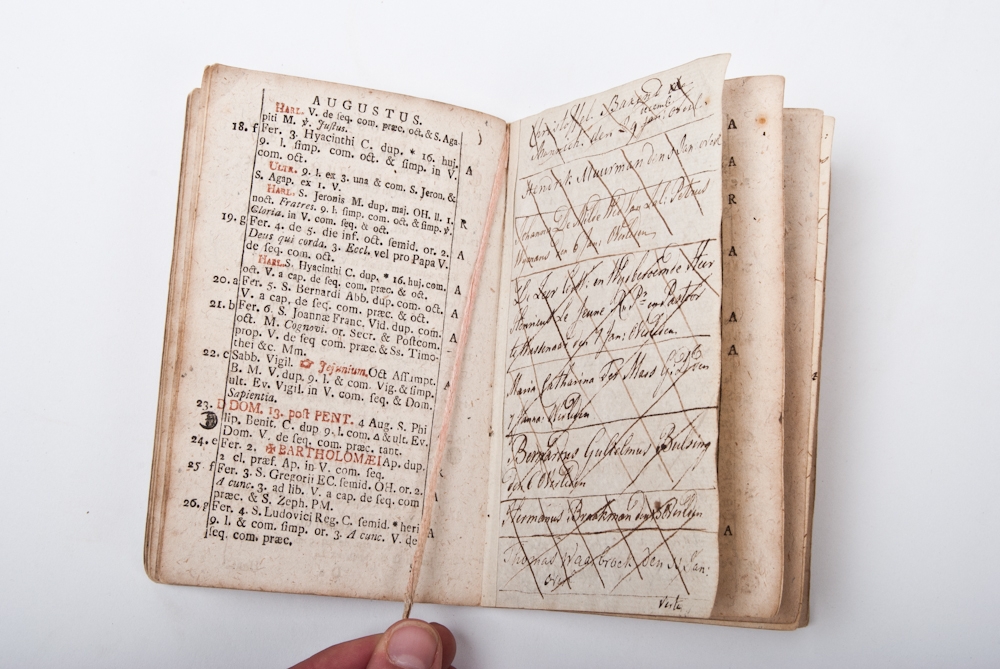 AUGUSTUS.
HARL. V. de seq. com. præc. oct. & S. Aga-
piti M. ℣. Justus.
18. f Fer. 3. Hyacinthi C. dup. * 16. huj.
9. l. simp. com. oct. & simp. in V. A
com. oct.
ULTR. 9. l. ex 3. una & com. S. Jeron. &
S. Agap. ex 1. V.
HARL. S. Jeronis M. dup. maj. OH. ll. 1. R
noct. Fratres. 9. l. simp. com. oct. & simp. ℣.
Gloria. in V. com. seq. & oct.
19. g Fer. 4. de 5. die inf. oct. semid. or. 2. A
Deus qui corda. 3. Eccl. vel pro Papa V.
de seq. com. oct.
HARL. S. Hyacinthi C. dup. * 16. huj. com. A
oct. V. a cap. de seq. com. præc. & oct.
20. a Fer. 5. S. Bernardi Abb. dup. com. oct. A
V. a cap. de seq. com. præc. & oct.
21. b Fer. 6. S. Joannæ Franc. Vid. dup. com. A
oct. M. Cognovi. or. Secr. & Postcom.
prop. V. de seq. com. præc. & Ss. Timo-
thei &c. Mm.
22. c Sabb. Vigil. Jejunium. Oct Assumpt.
B. M. V. dup. 9. l. & com. Vig. & simp. A
ult. Ev. Vigil. in V. com. seq. & Dom.
Sapientia.
23. D DOM. 13. post PENT. 4 Aug. S. Phi
lip. Benit. C. dup 9. l. com. & ult. Ev.
Dom. V. de seq. com. præc. tant.
24. e Fer. 2. ✠ BARTHOLOMÆI Ap. dup.
2 cl. præf. Ap. in V. com. seq.
25 f Fer. 3. S. Gregorii EC. semid. OH. or. 2.
A cunc. 3. ad lib. V. a cap. de seq. com
præc. & S. Zeph. PM.
26. g Fer. 4. S. Ludovici Reg. C. semid. * heri
9. l. & com. simp. or. 3. A cunc. V. de A
seq. com. præc.
den 29 Jan:
Muurman den Jan:
Johanna De
den 6 Jan: Overleden
De Zeer in Heer
Le Jeune Pastoor
te Wassenaar den 7 Jan: Overleden
Maria Catharina Der
7 Janua: Overleden
Bernardus Gulielmus
den Overleden
Hermanus Braakman den Overleden
Thomas den Jan:
Over
verte
A
A
R
A
A
A
A